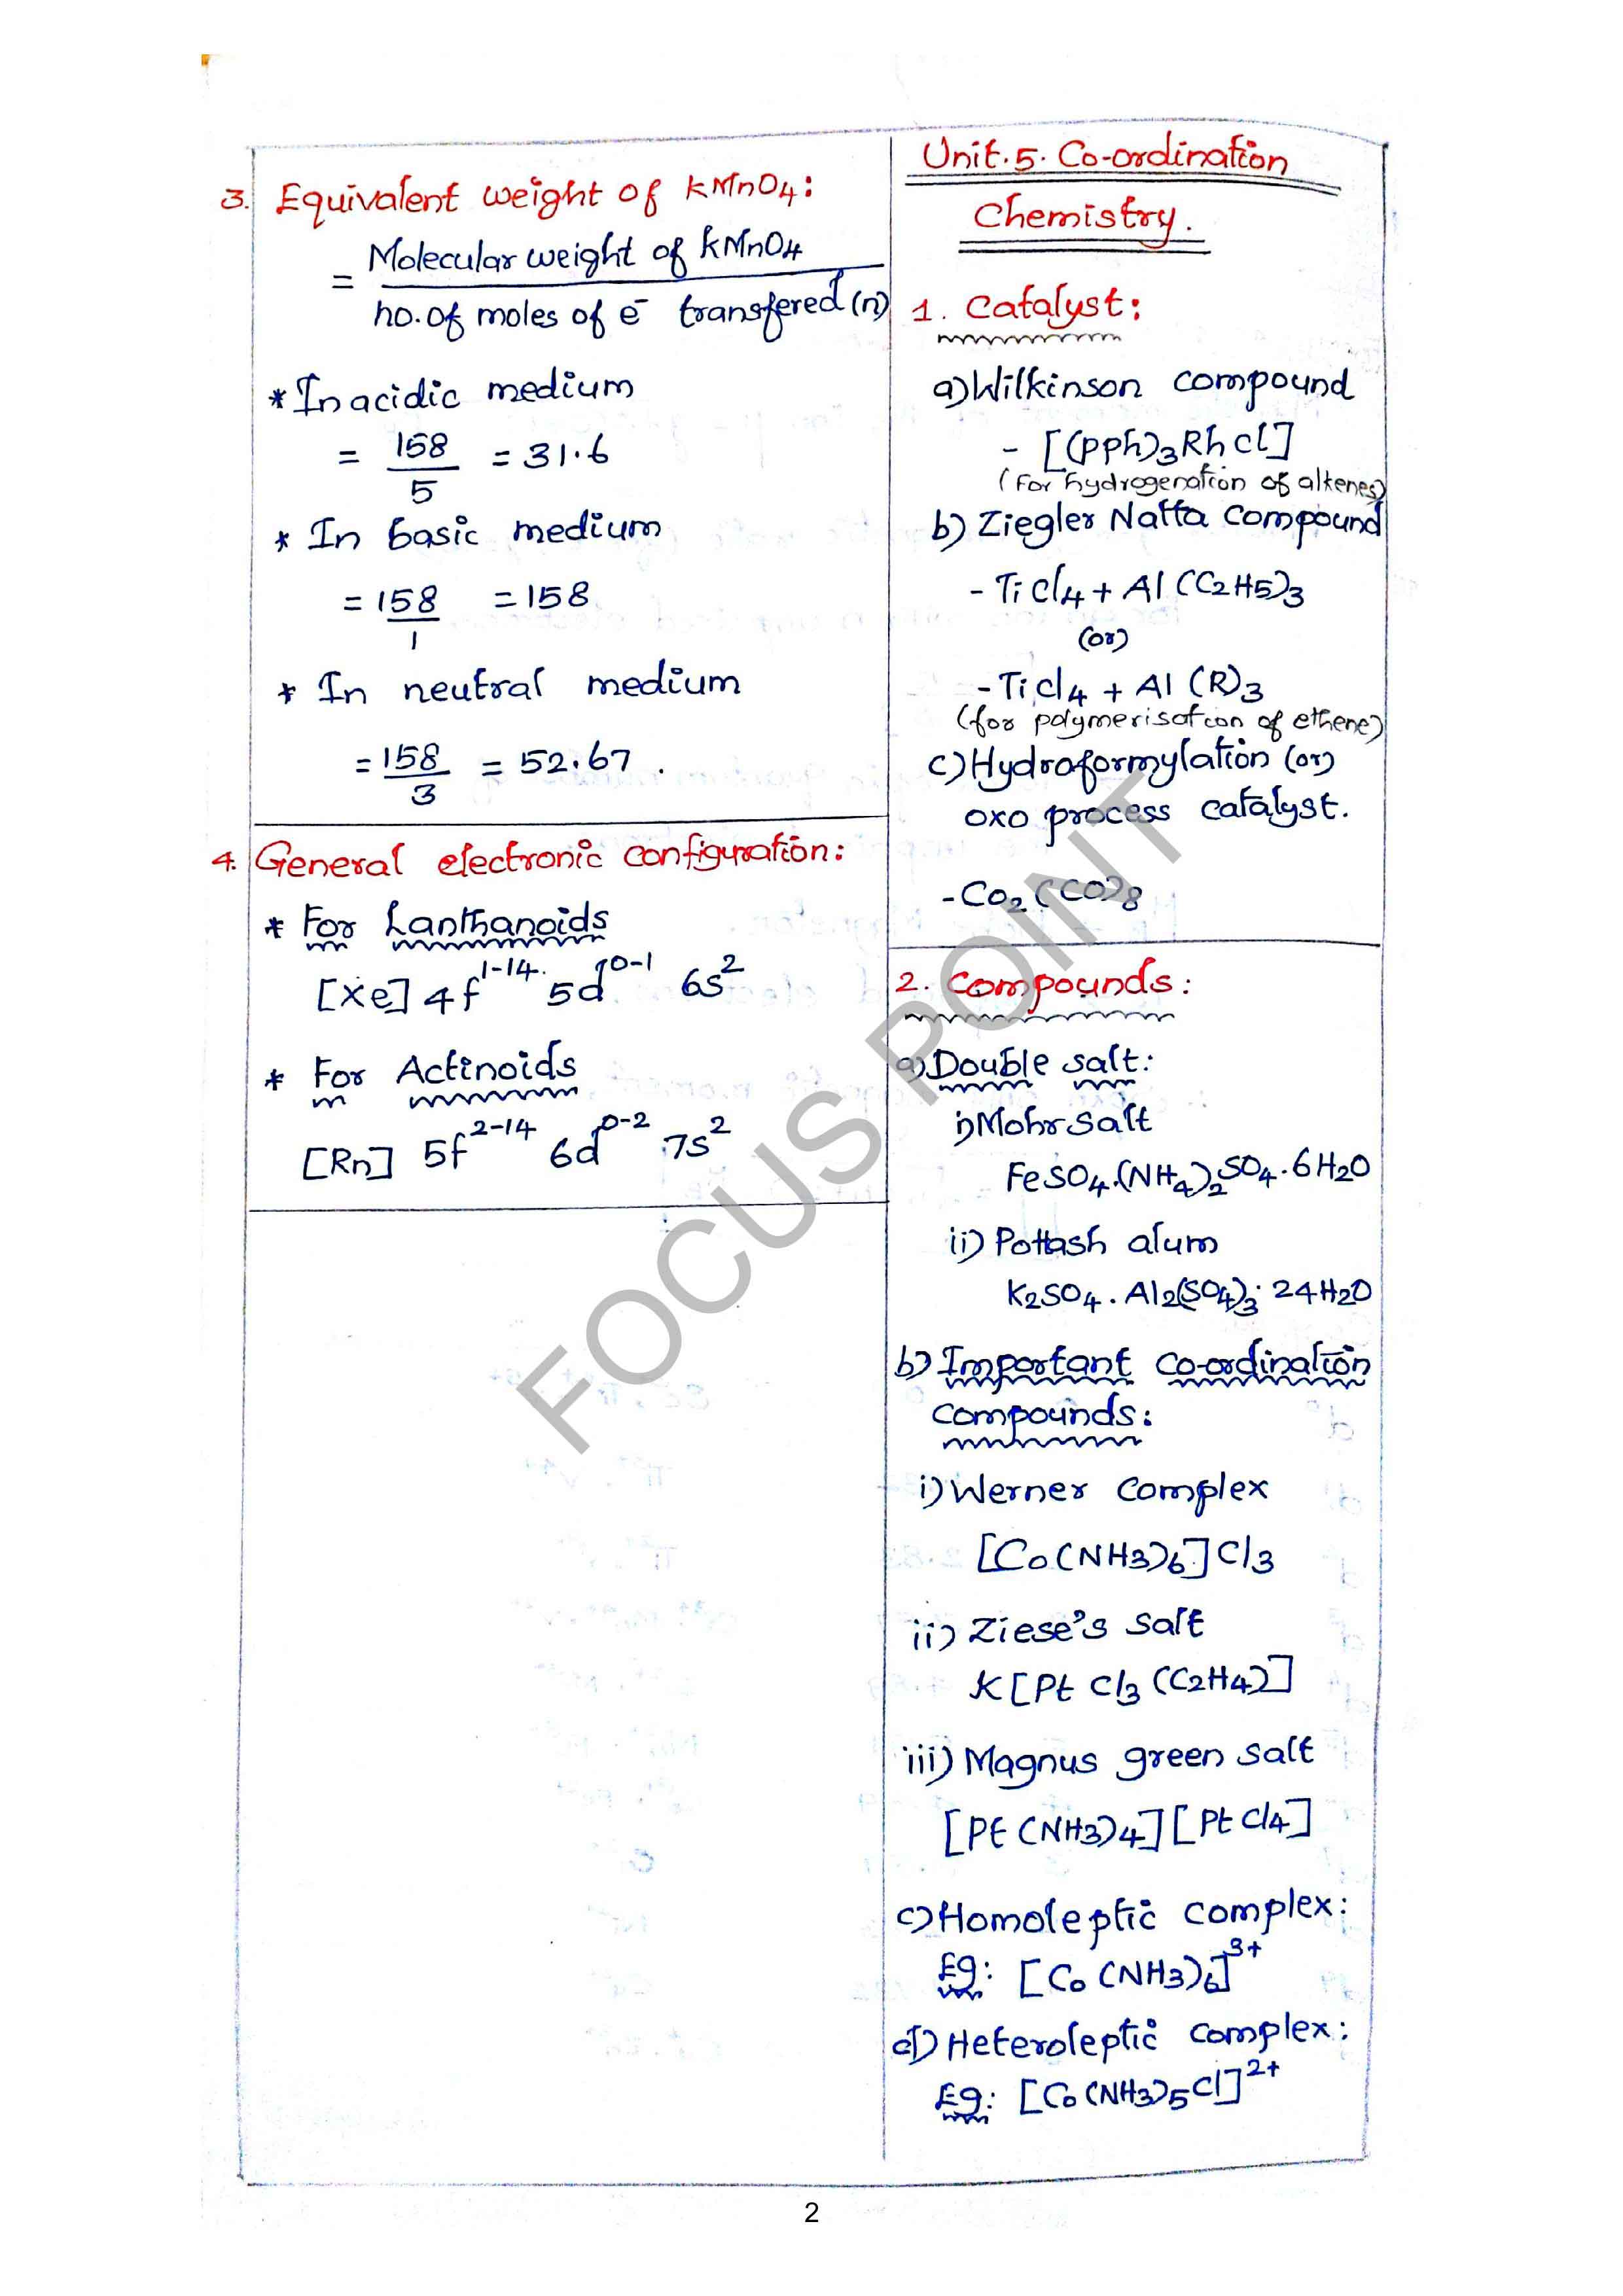 3. Equivalent weight of KMnO4:
= Molecular weight of KMnO4
no. of moles of e⁻ transfered (n)
* In acidic medium
= 158/5 = 31.6
* In basic medium
= 158/1 = 158
* In neutral medium
= 158/3 = 52.67.
4. General electronic configuration:
* For Lanthanoids
[Xe] 4f¹⁻¹⁴ 5d⁰⁻¹ 6s²
* For Actinoids
[Rn] 5f²⁻¹⁴ 6d⁰⁻² 7s²
Unit.5. Co-ordination
Chemistry.
1. Catalyst:
a) Wilkinson compound
- [(pph)3RhCl]
(For hydrogenation of alkenes)
b) Ziegler Natta compound
- TiCl4 + Al(C2H5)3
(or)
- TiCl4 + Al(R)3
(for polymerisation of ethene)
c) Hydroformylation (or)
oxo process catalyst.
- Co2(CO)8
2. Compounds:
a) Double salt:
i) Mohr salt
FeSO4.(NH4)2SO4.6H2O
ii) Pottash alum
K2SO4.Al2(SO4)3.24H2O
b) Important co-ordination
compounds:
i) Werner complex
[Co(NH3)6]Cl3
ii) Ziese's salt
K[PtCl3(C2H4)]
iii) Magnus green salt
[Pt(NH3)4][PtCl4]
c) Homoleptic complex:
Eg: [Co(NH3)6]³⁺
d) Heteroleptic complex:
Eg: [Co(NH3)5Cl]²⁺
FOCUS POINT
2